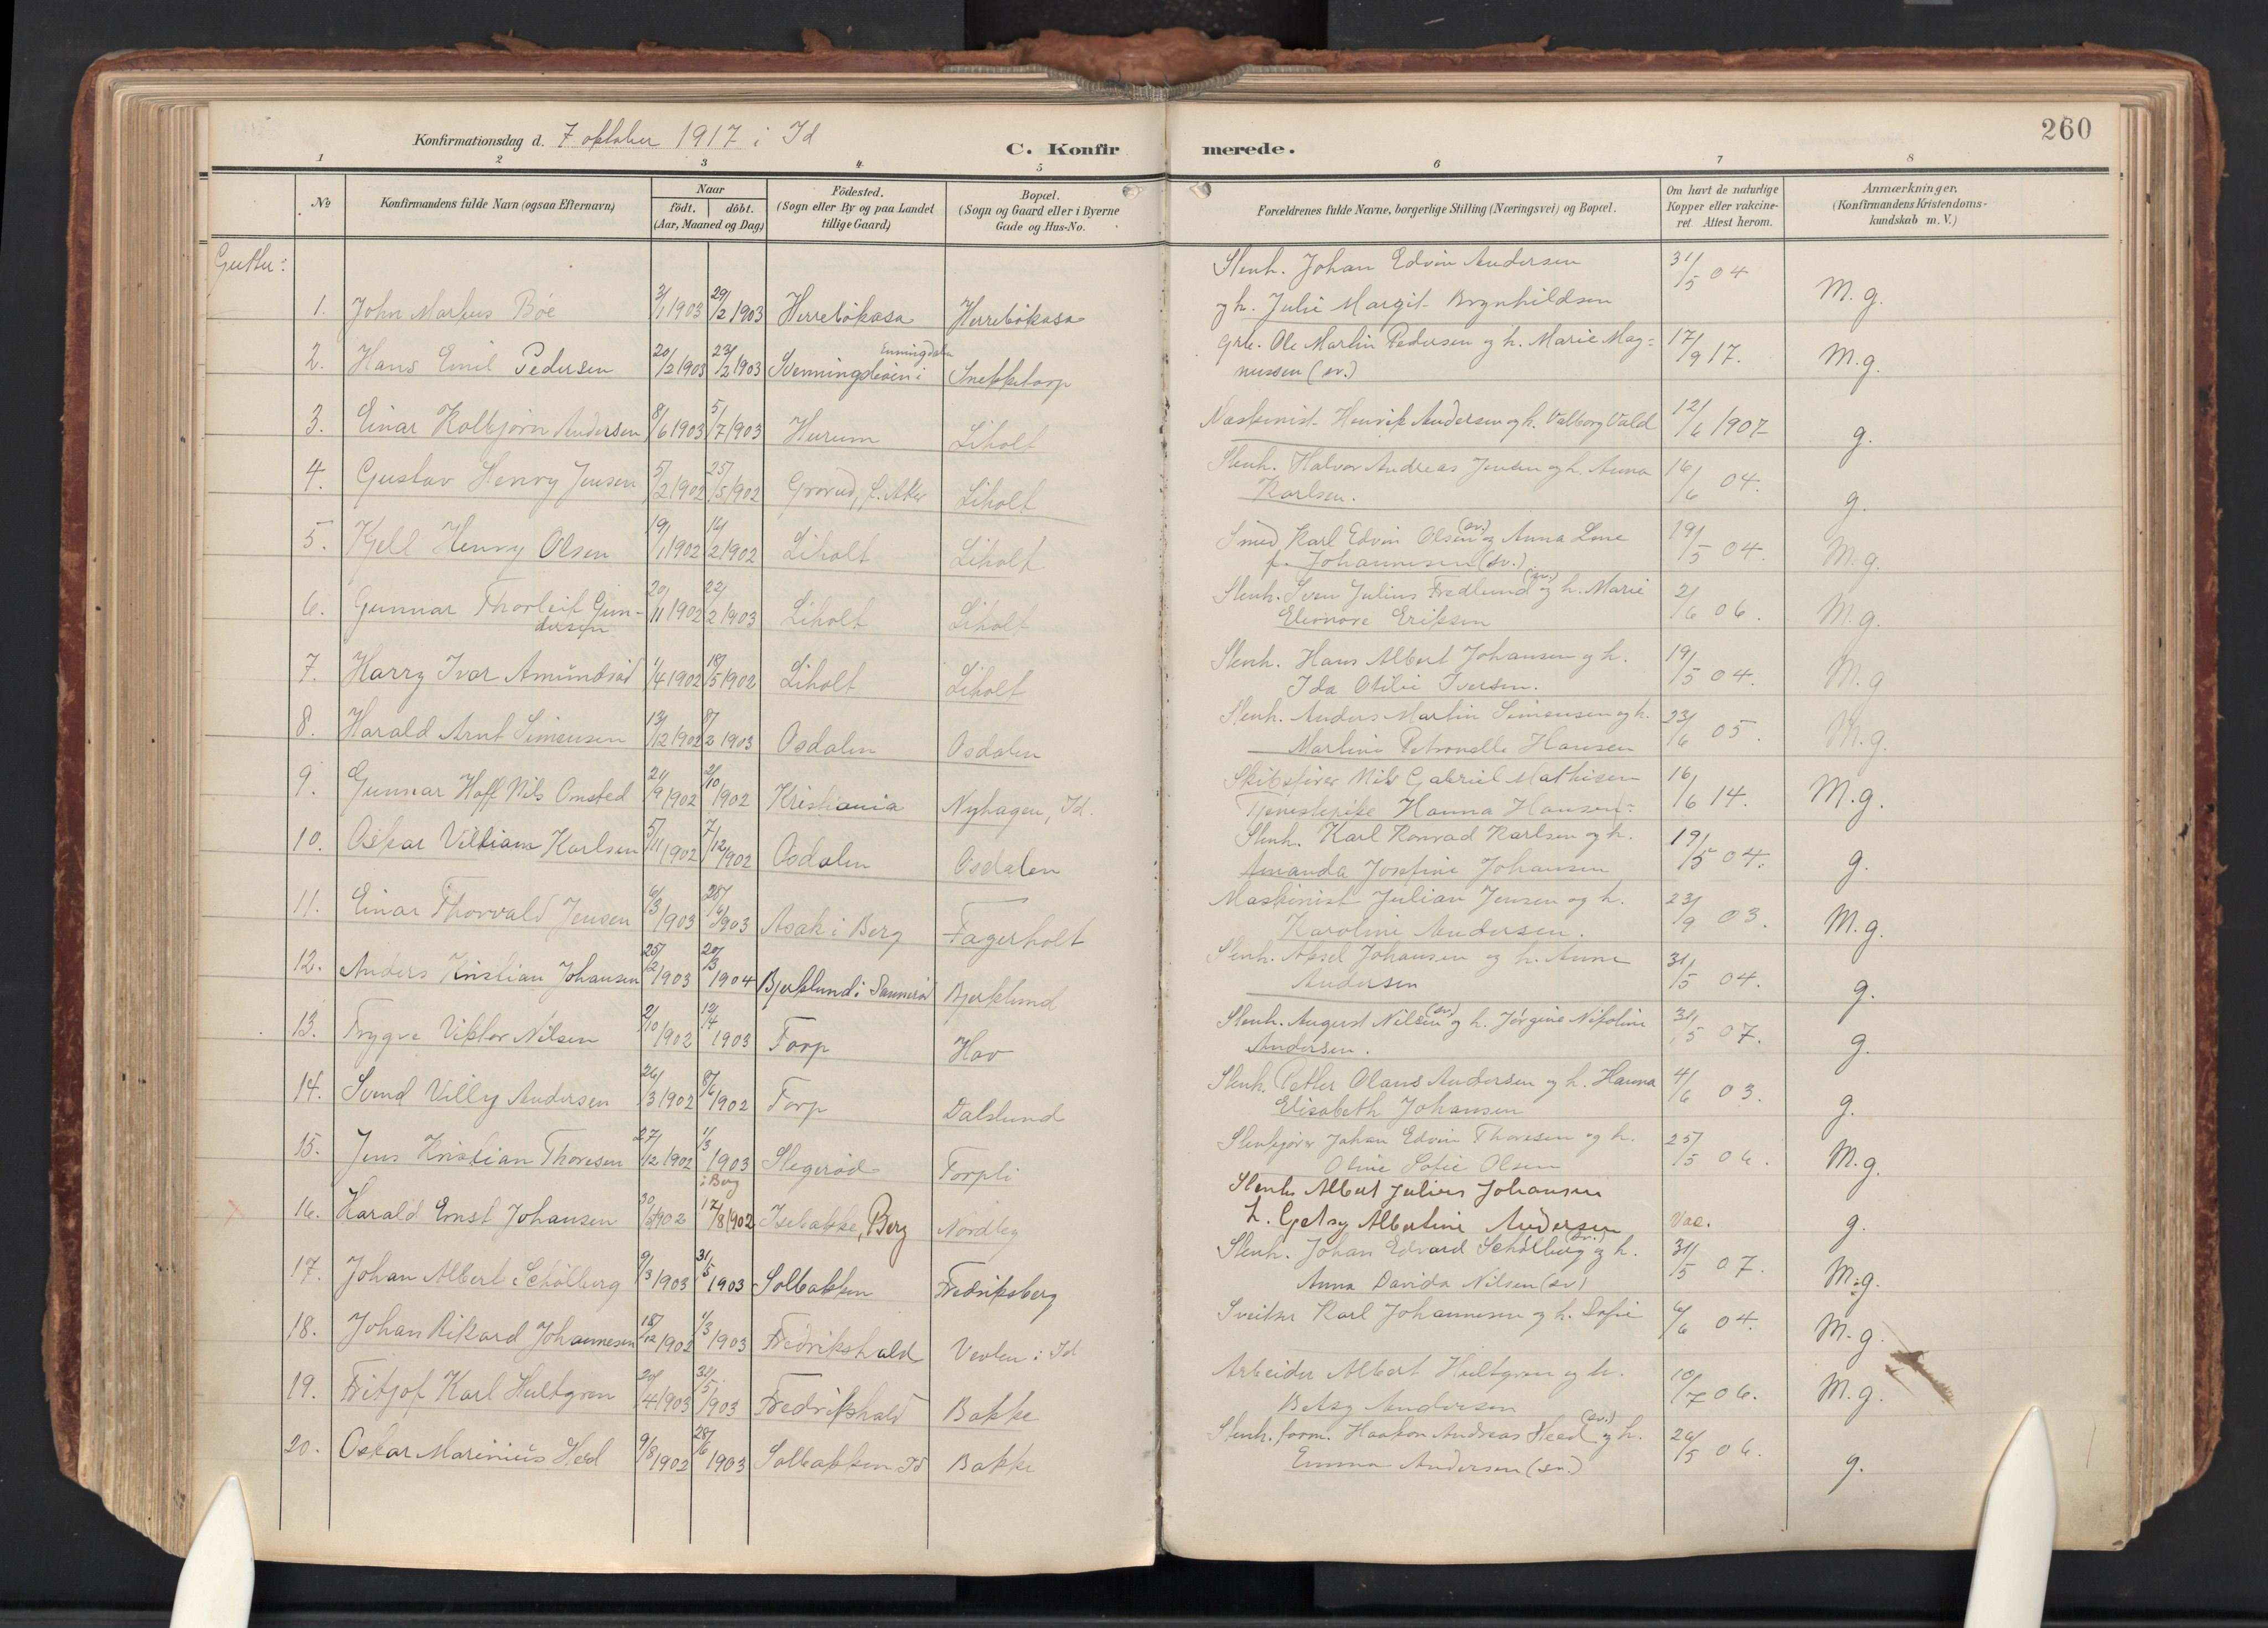 260
Konfirmationsdag d. 7 oktober 1917 i Id
C. Konfirmerede.
1 2 3 4 5 6 7 8
No
Konfirmandens fulde Navn (ogsaa Efternavn)
Naar
födt. döbt.
(Aar, Maaned og Dag)
Födested.
(Sogn eller By og paa Landet
tillige Gaard)
Bopæl.
(Sogn og Gaard eller i Byerne
Gade og Hus-No.
Forældrenes fulde Navne, borgerlige Stilling (Næringsvei) og Bopæl.
Om havt de naturlige
Kopper eller vakcine-
ret Attest herom.
Anmærkninger,
(Konfirmandens Kristendoms-
kundskab m. V.)
Gutter:
1. John Markus Bøe 3/1 1903 29/2 1903 Herrebøkasa Herrebøkasa Stenh. Johan Edvin Andersen 31/5 04 M.g.
og h. Julie Margit Brynhildsen
2. Hans Emil Pedersen 20/2 1903 23/2 1903 Enningdalen Snekketorp Grb. Ole Martin Pedersen og h. Marie Mag= 17/9 17. M.g.
nussen (sv.)
3. Einar Kolbjørn Andersen 8/6 1903 5/7 1903 Hurum Liholt Maskinist Henrik Andersen og h. Valborg Vald 12/6 1907 g.
4. Gustav Henry Jensen 5/2 1902 25/5 1902 Grorud, Aker Liholt Stenh. Halvor Andreas Jensen og h. Anna 16/6 04. g.
Karlsen.
5. Kjell Henry Olsen 19/1 1902 16/2 1902 Liholt Liholt Smed Karl Edvin Olsen (sv.) og Anna Lone 19/5 04. M.g.
f. Johannesen (sv.)
6. Gunnar Thorleif Gun- 20/11 1902 22/2 1903 Liholt Liholt Stenh. Sven Julius Fredlund (sv.) og h. Marie 2/6 06. M.g.
dersen Eleonore Eriksen
7. Harry Ivar Amundsød 1/4 1902 18/5 1902 Liholt Liholt Stenh. Hans Albert Johansen og h. 19/5 04. M.g
Ida Otilie Iversen.
8. Harald Arnt Simensen 13/12 1902 8/2 1903 Osdalen Osdalen Stenh. Anders Martin Simensen og h. 23/6 05. M.g.
Martine Petronelle Hansen
9. Gunnar Hoff Nils Omsted 21/9 1902 2/10 1902 Kristiania Nyhagen, Id. Skibsfører Nils Gabriel Mathisen 16/6 14. M.g.
Tjenestepike Hanna Hansen
10. Oskar Villiam Karlsen 5/11 1902 7/12 1902 Osdalen Osdalen Stenh. Karl Konrad Karlsen og h. 19/5 04. g.
Amanda Josefine Johansen
11. Einar Thorvald Jensen 6/3 1903 28/6 1903 Asak i Berg Fagerholt Maskinist Julian Jensen og h. 23/9 03. M.g.
Karoline Andersen.
12. Anders Kristian Johansen 25/12 1903 20/3 1904 Bjørklund i Sannerød Bjørklund Stenh. Aksel Johansen og h. Anne 31/5 04. g.
Andersen
13. Trygve Viktor Nilsen 2/10 1902 12/4 1903 Torp Hov Stenh. August Nilsen (sv) og h. Jørgine Nikoline 31/5 07. g.
Andersen.
14. Svend Villy Andersen 26/3 1902 8/6 1902 Torp Dalslund Stenh. Petter Olaus Andersen og h. Hanna 4/6 03. g.
Elisabeth Johansen
15. Jens Kristian Thoresen 27/12 1902 1/3 1903 Stegerød Torpli Stenkjører Johan Edvin Thoresen og h. 25/5 06. M.g.
Oline Sofie Olsen
16. Harald Ernst Johansen 30/5 1902 i Berg 17/8 1902 Isebakke, Berg Nordleg Stenh Albert Julius Johansen
h. Betsy Albertine Andersen Vac. g.
17. Johan Albert Schølberg 9/3 1903 31/5 1903 Solbakken Fredriksberg Stenh. Johan Edvard Schølberg (sv.) og h. 31/5 07. M.g.
Anna Davida Nilsen (sv)
18. Johan Rikard Johannesen 18/12 1902 1/3 1903 Fredrikshald Vevlen i Id Sveitser Karl Johannesen og h. Sofie 6/6 04. M.g.
19. Fritjof Karl Hultgren 20/4 1903 31/5 1903 Fredrikshald Bakke Arbeider Albert Hultgren og h. 10/7 06. M.g.
Betsy Andersen
20. Oskar Marinius Heed 9/8 1902 28/6 1903 Solbakken Id Bakke Stenh. form. Haakon Andreas Heed (sv.) og h. 26/5 06. g.
Emma Andersen (sv.)